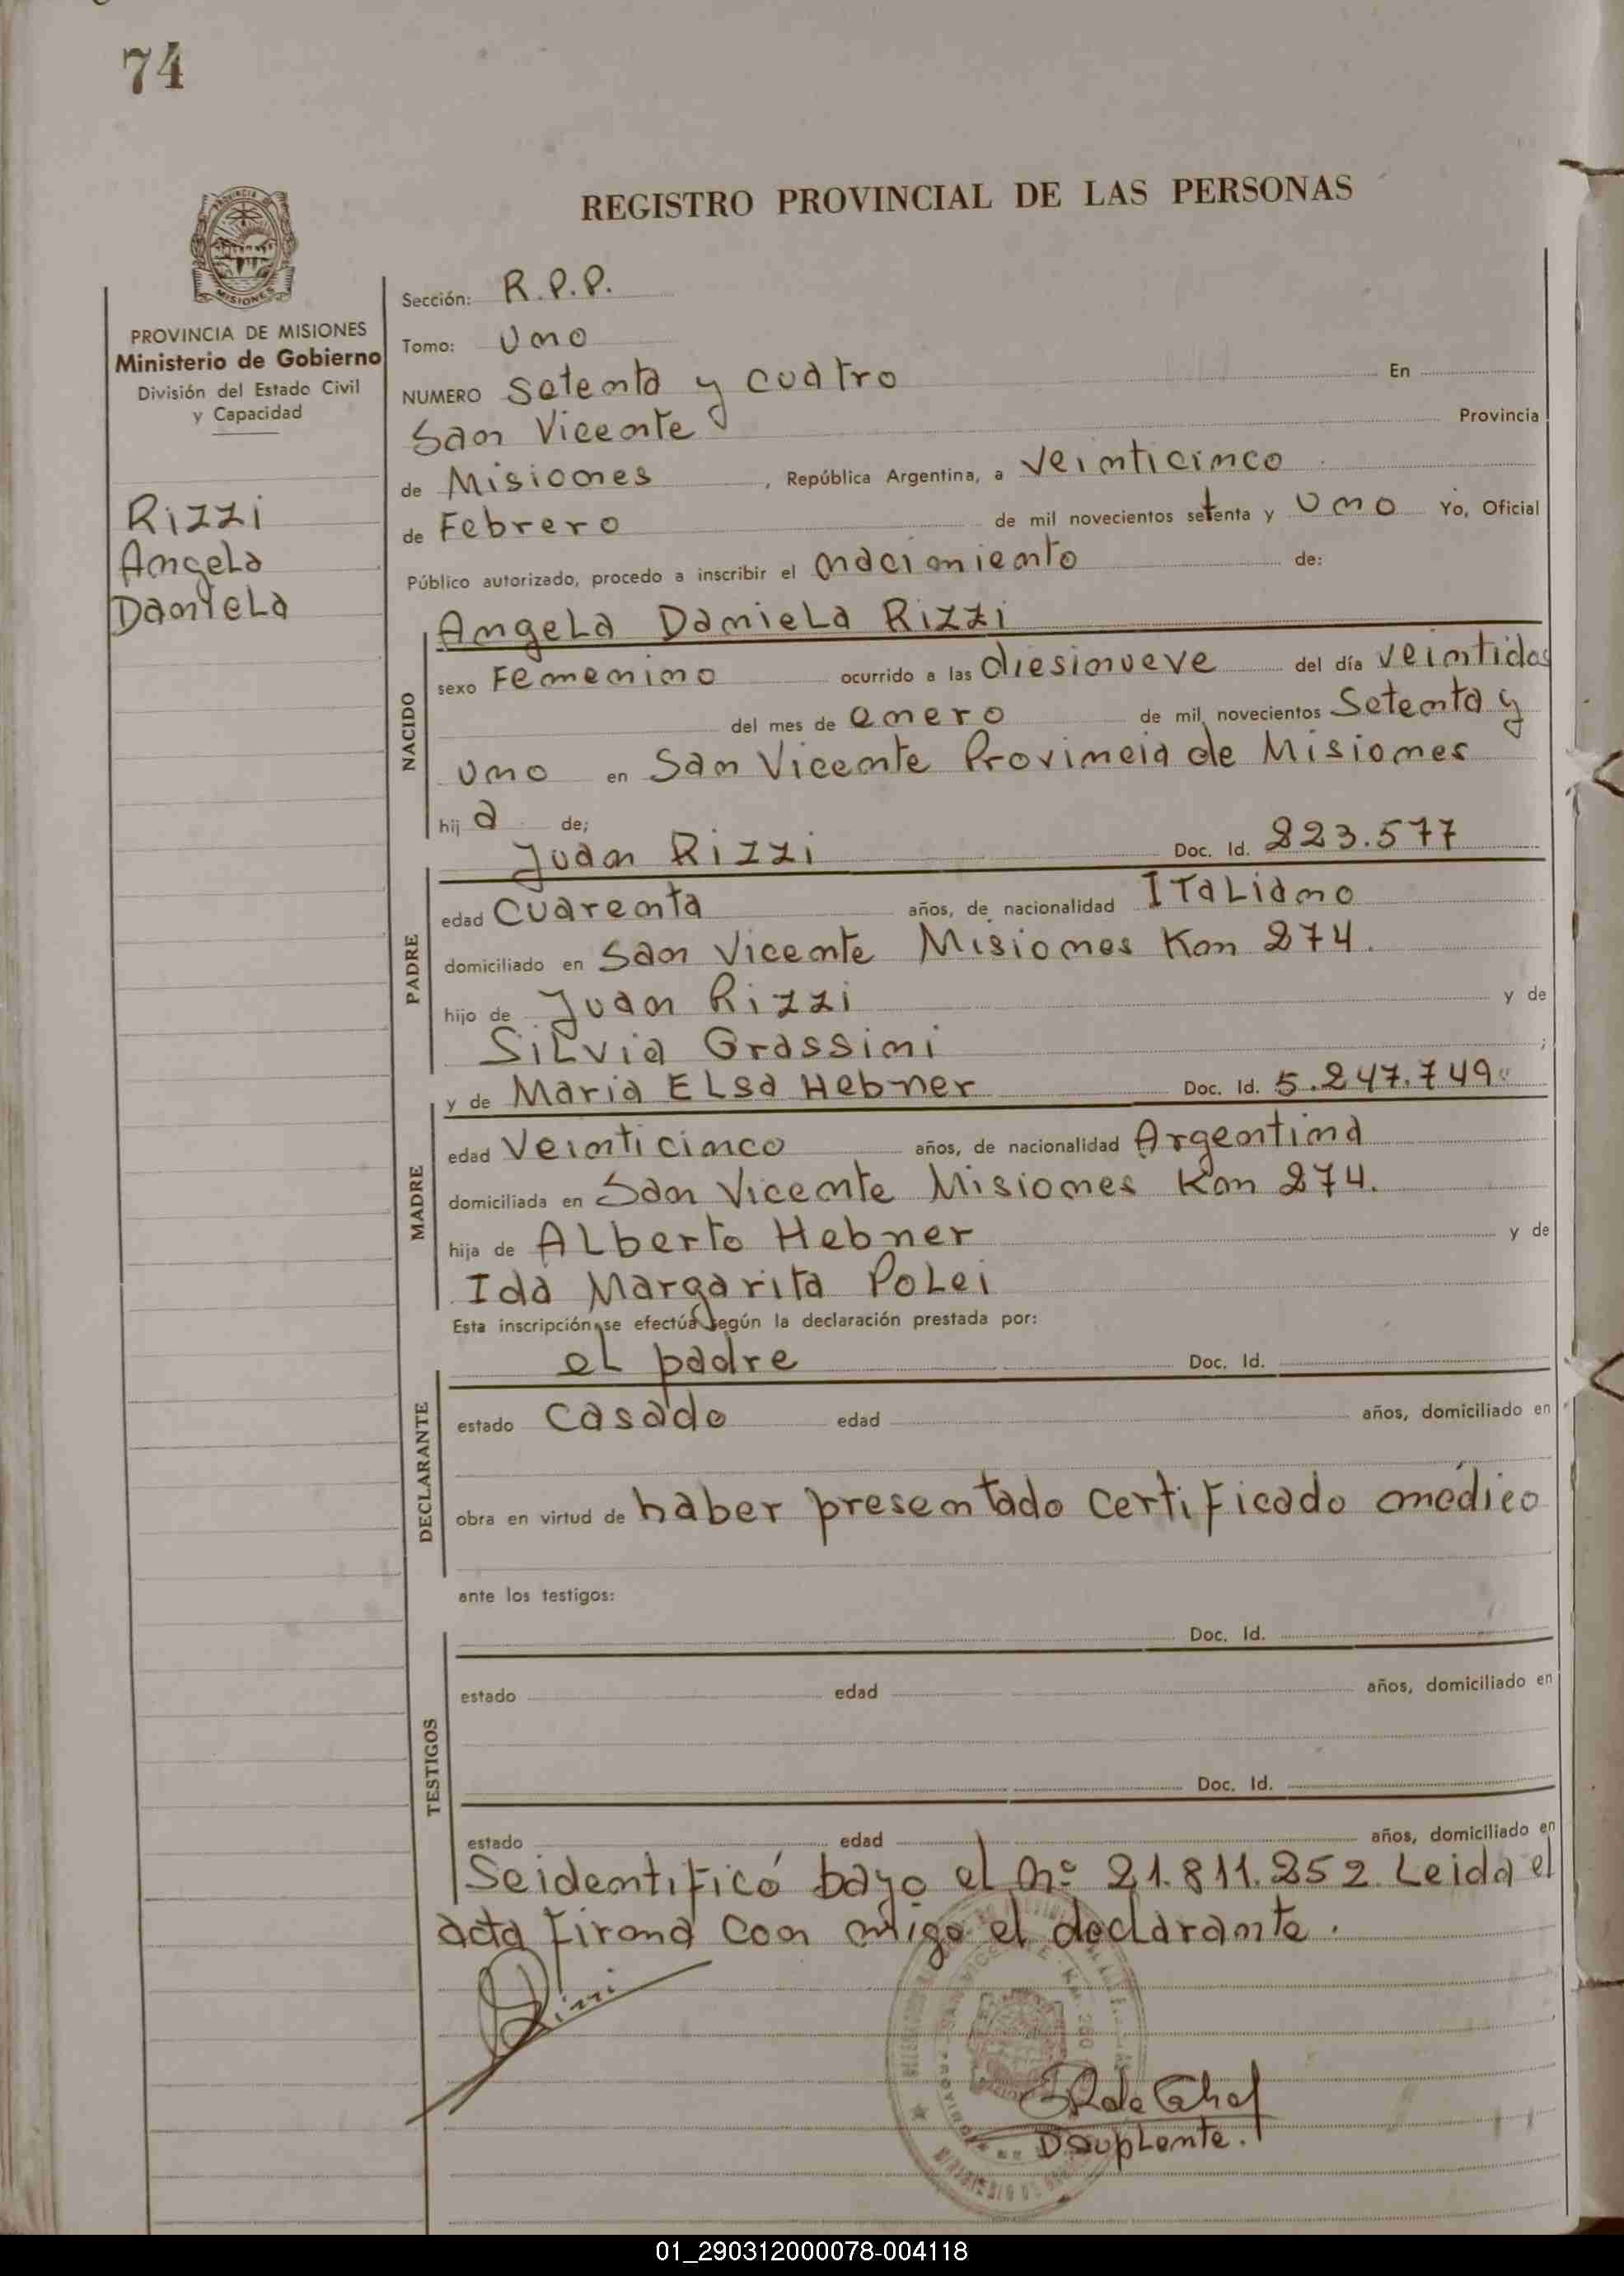 74
REGISTRO PROVINCIAL DE LAS PERSONAS
PROVINCIA DE MISIONES
Ministerio de Gobierno
División del Estado Civil
y Capacidad
Rizzi
Angela
Daniela
Sección: R.P.P.
Tomo: Uno
NUMERO Setenta y cuatro En
San Vicente Provincia
de Misiones , República Argentina, a Veinticinco
de Febrero de mil novecientos setenta y Uno Yo, Oficial
Público autorizado, procedo a inscribir el nacimiento de:
NACIDO
Angela Daniela Rizzi
sexo Femenino ocurrido a las diesinueve del día Veintidos
del mes de enero de mil novecientos Setenta y
Uno en San Vicente Provincia de Misiones
hij a de;
PADRE
Juan Rizzi Doc. Id. 223.577
edad Cuarenta años, de nacionalidad Italiano
domiciliado en San Vicente Misiones Km 274.
hijo de Juan Rizzi y de
Silvia Grassini ;
MADRE
y de Maria Elsa Hebner Doc. Id. 5.247.749
edad Veinticinco años, de nacionalidad Argentina
domiciliada en San Vicente Misiones Km 274.
hija de Alberto Hebner y de
Ida Margarita Polei
Esta inscripción se efectúa según la declaración prestada por:
DECLARANTE
el padre Doc. Id.
estado Casado edad años, domiciliado en
obra en virtud de haber presentado certificado médico
ante los testigos:
TESTIGOS
Doc. Id.
estado edad años, domiciliado en
Doc. Id.
estado edad años, domiciliado en
Se identificó bayo el nº 21.811.252. Leida el
acta firma con migo el declarante.
Rizzi
D Suplente.
01_290312000078-004118